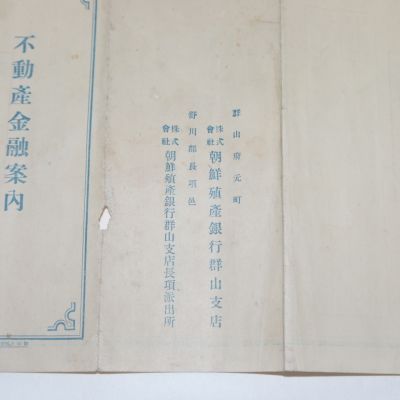 群山府元町
株式會社 朝鮮殖產銀行群山支店
舒川郡長項邑
株式會社 朝鮮殖產銀行群山支店長項派出所
不動產金融案內